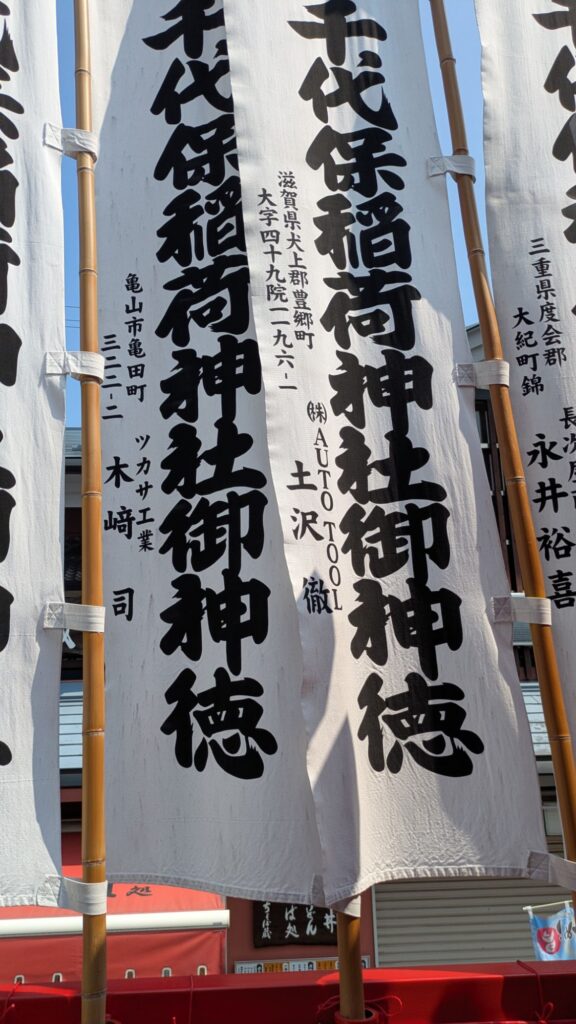 三重県度会郡
大紀町錦
永井裕喜
千代保稲荷神社御神徳
滋賀県犬上郡豊郷町
大字四十九院一二九六-一
㈱AUTO TOOL
土沢 徹
千代保稲荷神社御神徳
亀山市亀田町
三二二-二
ツカサ工業
木﨑 司